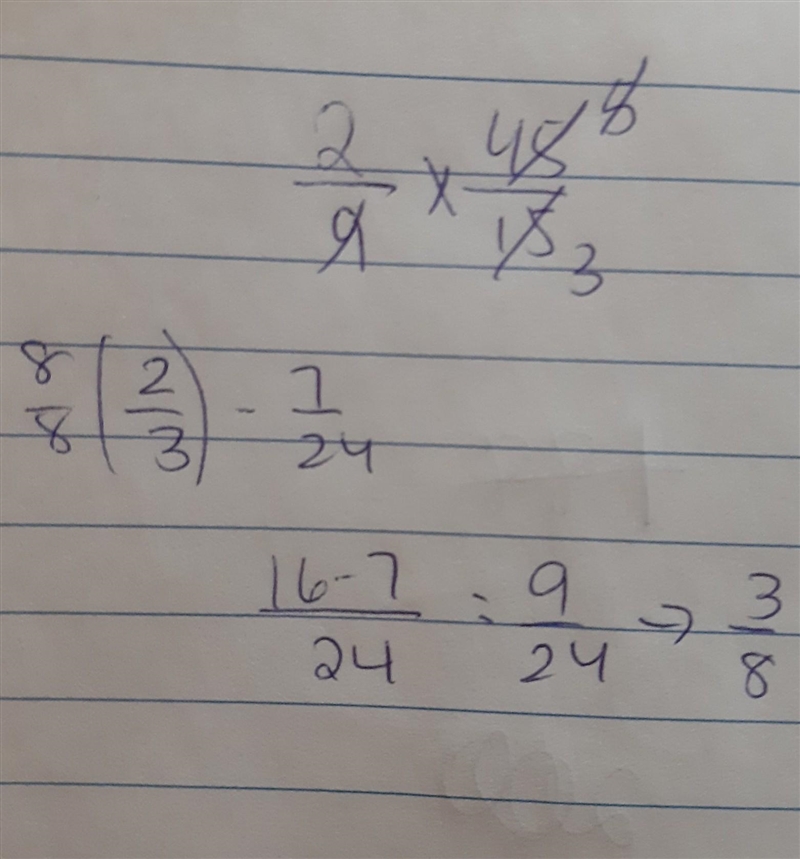 2/9 × 45/15 3
8/8 (2/3) - 7/24
16-7/24 = 9/24 → 3/8